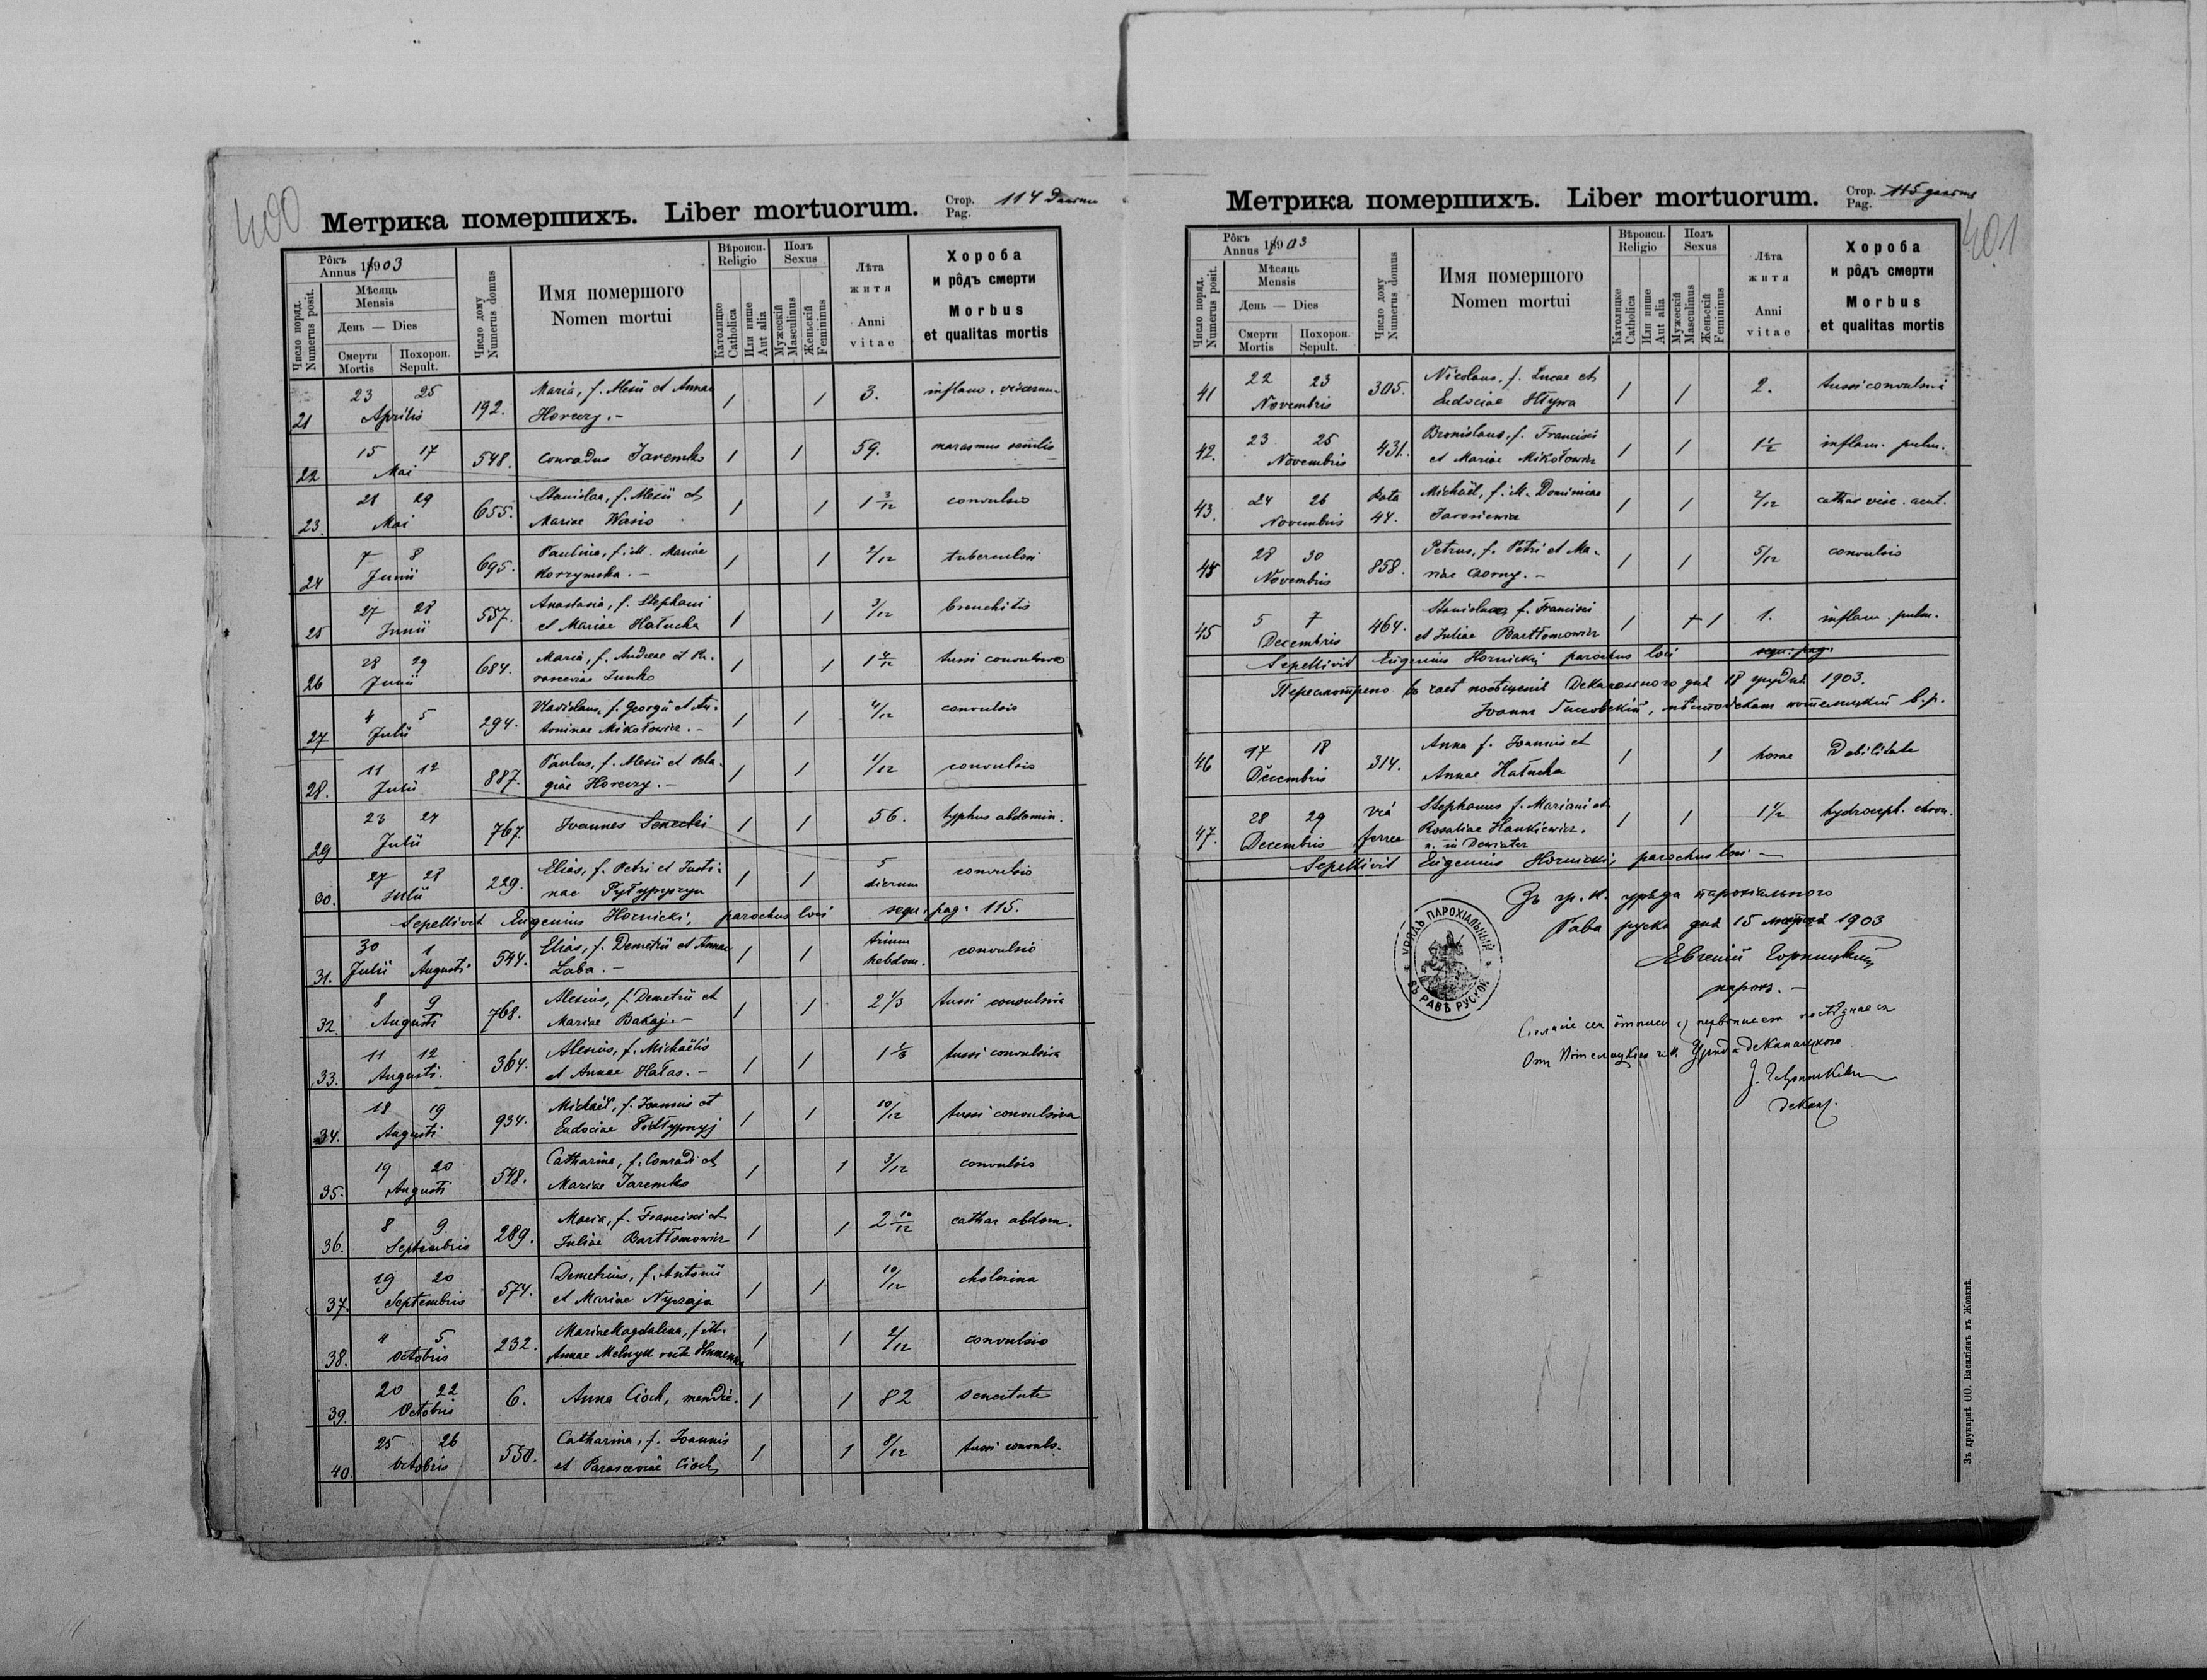 400
Метрика помершихъ. Liber mortuorum.
Стор. Pag. 114
Рôкъ Annus 1903
Число поряд. Numerus posit.
Мѣсяць Mensis
День — Dies
Смерти Mortis
Похорон. Sepult.
Число дому Numerus domus
Имя помершого Nomen mortui
Вѣроиси. Religio
Католицке Catholica
Или инше Aut alia
Полъ Sexus
Мужескій Masculinus
Женьскій Femininus
Лѣта житя Anni vitae
Хороба и рôдъ смерти Morbus et qualitas mortis
21 23 25 Aprilis 192. Maria, f. Alexii et Annae Horczy.- 1 1 3. inflam.
22 15 17 Mai 548. Conradus Jaremko 1 1 59. marasmus senilis
23. 28 29 Mai 655. Stanislaa, f. Alexii et Mariae Wasio 1 1 1 3/12 convulsio
24 7 8 Junii 695. Paulina, f. M. Mariae Korzymska.- 1 1 2/12 tuberculosi
25 27 28 Junii 557. Anastasia, f. Stephani et Mariae Hałucha 1 1 3/12 bronchitis
26 28 29 Junii 684. Maria, f. Andreae et Pa-rasceviae Sunko 1 1 1 4/12 tussi convulsiva
27 4 5 Julii 294. Vladislaus, f. Georgii et An-toninae Mikołowicz.- 1 1 4/12 convulsio
28. 11 12 Julii 887. Paulus, f. Alexii et Pela-giae Horczy.- 1 1 1/12 convulsio
29 23 24 Julii 767. Ivannes Senecki 1 1 56. typhus abdomin.
30. 27 28 Julii 229. Elias, f. Petri et Justi-nae 1 1 5 dierum convulsio
Sepellivit Eugenius Hornicki, parochus loci sequ. pag. 115.
31. 30 Julii 1 Augusti 544. Elias, f. Demetrii et Annae Laba.- 1 1 trium hebdom. convulsio
32. 8 9 Augusti 768. Alexius, f. Demetrii et Mariae Bakaj.- 1 1 2 1/3 tussi convulsiva
33. 11 12 Augusti. 364. Alexius, f. Michaëlis et Annae Hałas.- 1 1 1 1/3 tussi convulsiva
34. 18 19 Augusti 934. Michaël, f. Joannis et Eudociae 1 1 10/12 tussi convulsiva
35. 19 20 Augusti 548. Catharina, f. Conradi et Mariae Jaremko 1 1 3/12 convulsio
36. 8 9. Septembris 289. Maria, f. Francisci et Juliae Bartłomowicz 1 1 2 10/12 cathar abdom.
37. 19 20 Septembris 574. Demetrius, f. Antonii et Mariae Nyczaja 1 1 10/12 cholerina
38. 4 5 Octobris 232. Mariae Magdalena, f. M. Annae Melnyk recte 1 1 2/12 convulsio
39. 20 22 Octobris 6. Anna Cioch, mendic. 1 1 82 senectute
40. 25 26 Octobris 550. Catharina, f. Joannis et Parasceviae Cioch 1 1 8/12 tussi convuls.
401
Метрика помершихъ. Liber mortuorum.
Стор. Pag. 115
Рôкъ Annus 1903
Число поряд. Numerus posit.
Мѣсяць Mensis
День — Dies
Смерти Mortis
Похорон. Sepult.
Число дому Numerus domus
Имя помершого Nomen mortui
Вѣроиси. Religio
Католицке Catholica
Или инше Aut alia
Полъ Sexus
Мужескій Masculinus
Женьскій Femininus
Лѣта житя Anni vitae
Хороба и рôдъ смерти Morbus et qualitas mortis
41 22 23 Novembris 305. Nicolaus, f. Lucae et Eudociae Hływa 1 1 2. tussi convulsivi
42. 23 25 Novembris 431. Bronislaus, f. Francisci et Mariae Mikołowicz 1 1 1 1/2 inflam. pulm.
43. 24 26 Novembris Rata 44. Michaël, f. M. Dominicae Jarosiewicz 1 1 2/12 cathar visc. acut.
28 30 Novembris 858. Petrus, f. Petri et Ma-riae Czorny.- 1 1 5/12 convulsio
45 5 7 Decembris 464. f. Francisci et Juliae Bartłomowicz 1 1 1. inflam. pulm.
Sepellivit Eugenius Hornicki parochus loci sequ. pag.
Пересмотрено въ часѣ посѣщенія деканального дня 18 грудня 1903.
46 17 18 Decembris 314. Anna f. Joannis et Annae Hałucha 1 1 horae Debilitate
47. 28 29 Decembris via ferrea Stephanus f. Mariani et Rosaliae Hankiewicz. 1 1 1 1/2 hydroceph. chron.
Sepellivit Eugenius Hornicki, parochus loci -
Зъ гр. к. уряда парохіального
Рава руска дня 15 1903
Евгеній Горницкій
парох. -
УРЯДЪ ПАРОХІАЛЬНЫЙ ВЪ РАВѢ РУСКОЙ
декан.
Зъ друкарнѣ ОО. Василіянъ въ Жовквѣ.